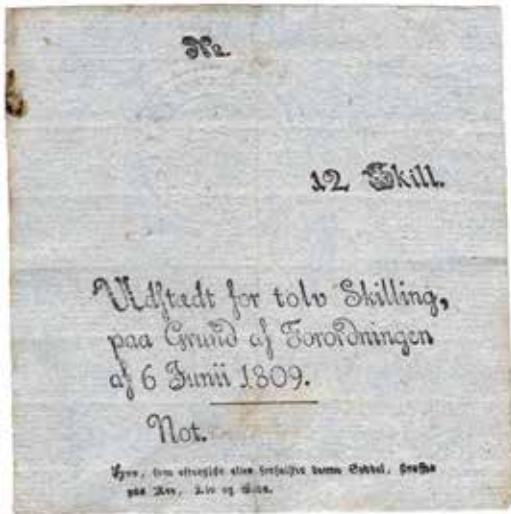 No.
12 Skill.
Udstædt for tolv Skilling,
paa Grund af Forordningen
af 6 Junii 1809.
Not.
som eftergiøre eller forfalske denne Seddel, straffes
paa Ære, Liv og Gods.